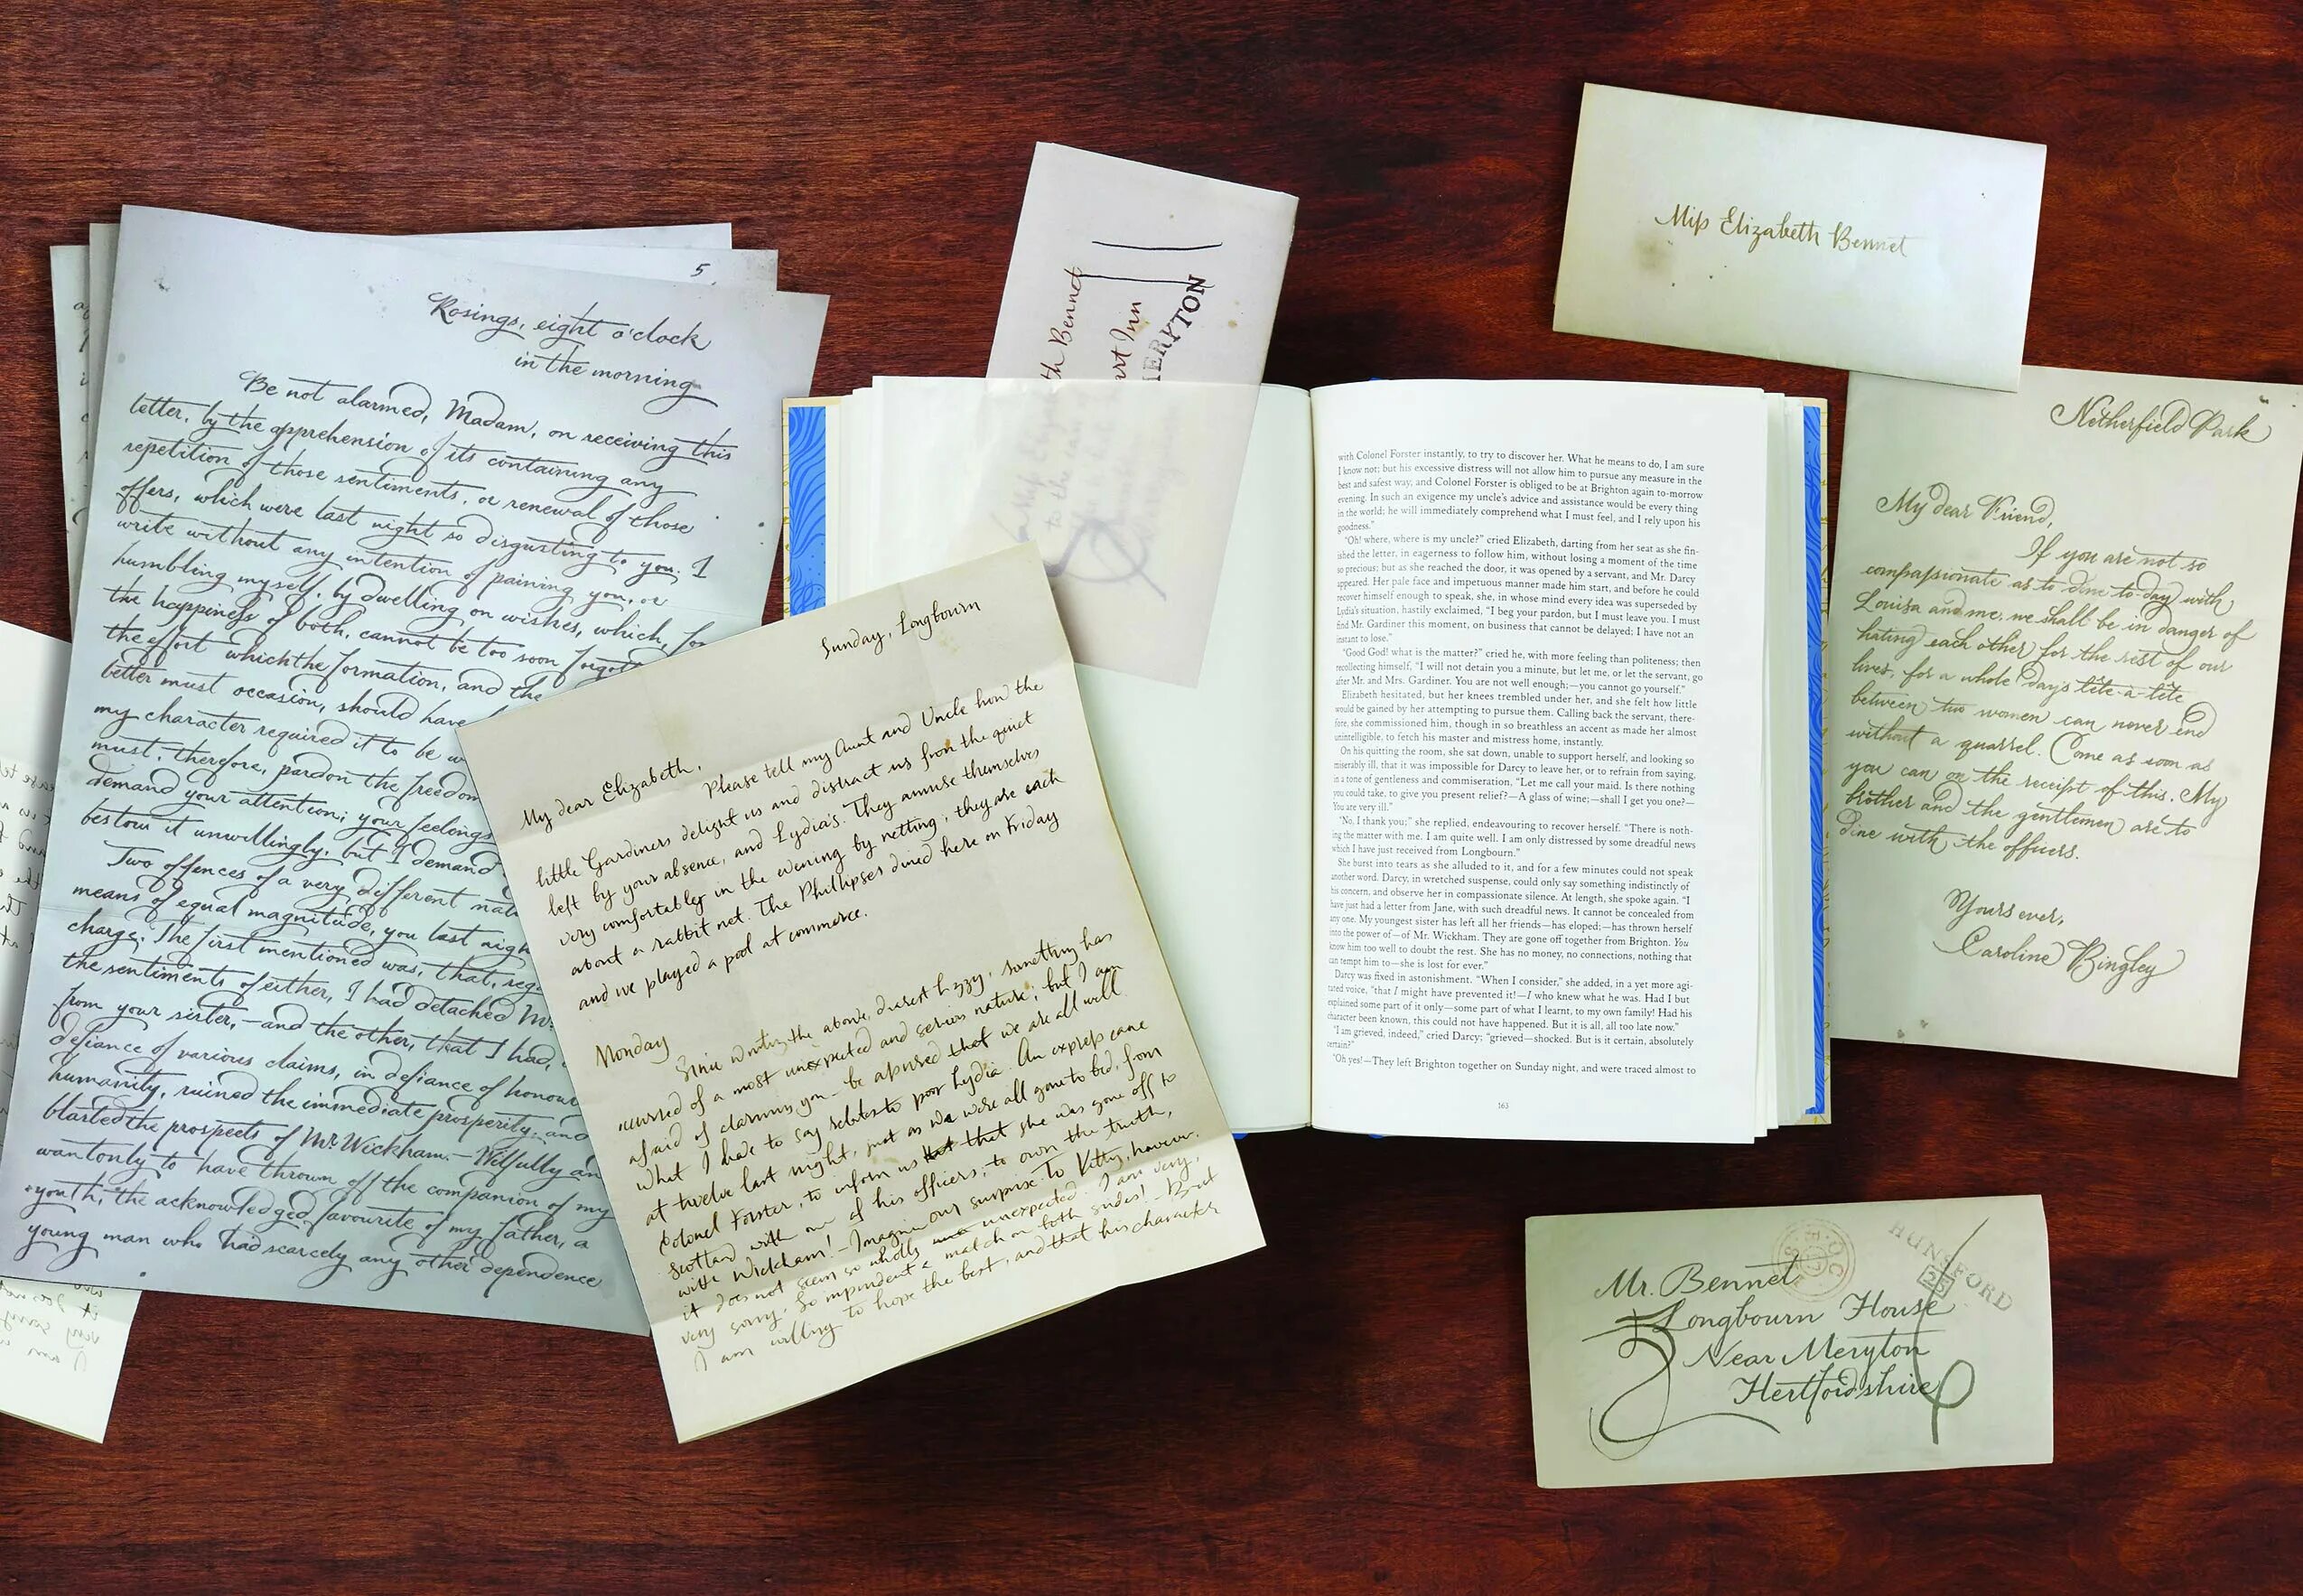 5
Rosings, eight o'clock
in the morning
Be not alarmed, Madam, on receiving this
letter, by the apprehension of its containing any
repetition of those sentiments, or renewal of those
offers, which were last night so disgusting to you. I
write without any intention of paining you, or
humbling myself, by dwelling on wishes, which, for
the happiness of both, cannot be too soon
the effort which the formation, and the
better must occasion, should have
my character required it to be
must, therefore, pardon the freedom
demand your attention; your feelings
bestow it unwillingly, but I demand
Two offences of a very different
means of equal magnitude, you last
charge. The first mentioned was, that,
the sentiments of either, I had detached
from your sister,—and the other, that I had,
defiance of various claims, in defiance of honour
humanity, ruined the immediate prosperity, and
blasted the prospects of Mr. Wickham.— Wilfully
wantonly to have thrown off the companion of my
youth, the acknowledged favourite of my father, a
young man who had scarcely any other dependence
Sunday, Longbourn
My dear Elizabeth,
Please tell my Aunt and Uncle how the
little Gardiners delight us and distract us from the quiet
left by your absence, and Lydia's. They amuse themselves
very comfortably in the evening by netting; they are each
about a rabbit net. The Phillipses dined here on Friday
and we played a pool at commerce.
Monday
Since writing the above, dearest Lizzy, something has
occurred of a most unexpected and serious nature; but I am
afraid of alarming you – be assured that we are all well.
What I have to say relates to poor Lydia. An express came
at twelve last night, just as we were all gone to bed, from
Colonel Forster, to inform us that she was gone off to
Scotland with one of his officers; to own the truth,
with Wickham! – Imagine our surprise. To Kitty, however,
it does not seem so wholly unexpected. I am very,
very sorry. So imprudent a match on both sides! – But
I am willing to hope the best, and that his character
th Bennet
art Inn
MERYTON
with Colonel Forster instantly, to try to discover her. What he means to do, I am sure
I know not; but his excessive distress will not allow him to pursue any measure in the
best and safest way, and Colonel Forster is obliged to be at Brighton again to-morrow
evening. In such an exigence my uncle's advice and assistance would be every thing
in the world; he will immediately comprehend what I must feel, and I rely upon his
goodness."
"Oh! where, where is my uncle?" cried Elizabeth, darting from her seat as she fin-
ished the letter, in eagerness to follow him, without losing a moment of the time
so precious; but as she reached the door, it was opened by a servant, and Mr. Darcy
appeared. Her pale face and impetuous manner made him start, and before he could
recover himself enough to speak, she, in whose mind every idea was superseded by
Lydia's situation, hastily exclaimed, "I beg your pardon, but I must leave you. I must
find Mr. Gardiner this moment, on business that cannot be delayed; I have not an
instant to lose."
"Good God! what is the matter?" cried he, with more feeling than politeness; then
recollecting himself, "I will not detain you a minute, but let me, or let the servant, go
after Mr. and Mrs. Gardiner. You are not well enough;—you cannot go yourself."
Elizabeth hesitated, but her knees trembled under her, and she felt how little
would be gained by her attempting to pursue them. Calling back the servant, there-
fore, she commissioned him, though in so breathless an accent as made her almost
unintelligible, to fetch his master and mistress home, instantly.
On his quitting the room, she sat down, unable to support herself, and looking so
miserably ill, that it was impossible for Darcy to leave her, or to refrain from saying,
in a tone of gentleness and commiseration, "Let me call your maid. Is there nothing
you could take, to give you present relief?—A glass of wine;—shall I get you one?—
You are very ill."
"No, I thank you;" she replied, endeavouring to recover herself. "There is noth-
ing the matter with me. I am quite well. I am only distressed by some dreadful news
which I have just received from Longbourn."
She burst into tears as she alluded to it, and for a few minutes could not speak
another word. Darcy, in wretched suspense, could only say something indistinctly of
his concern, and observe her in compassionate silence. At length, she spoke again. "I
have just had a letter from Jane, with such dreadful news. It cannot be concealed from
any one. My youngest sister has left all her friends—has eloped;—has thrown herself
into the power of—of Mr. Wickham. They are gone off together from Brighton. You
know him too well to doubt the rest. She has no money, no connections, nothing that
can tempt him to—she is lost for ever."
Darcy was fixed in astonishment. "When I consider," she added, in a yet more agi-
tated voice, "that I might have prevented it!—I who knew what he was. Had I but
explained some part of it only—some part of what I learnt, to my own family! Had his
character been known, this could not have happened. But it is all, all too late now."
"I am grieved, indeed," cried Darcy; "grieved—shocked. But is it certain, absolutely
certain?"
"Oh yes!—They left Brighton together on Sunday night, and were traced almost to
163
Miſs Elizabeth Bennet
Netherfield Park
My dear Friend,
If you are not so
compaſsionate as to dine to-day with
Louisa and me, we shall be in danger of
hating each other for the rest of our
lives, for a whole day's tête-à-tête
between two women can never end
without a quarrel. Come as soon as
you can on the receipt of this. My
brother and the gentlemen are to
dine with the officers.
Yours ever,
Caroline Bingley
HUNSFORD
Mr. Bennet
Longbourn House
Near Meryton
Hertfordshire